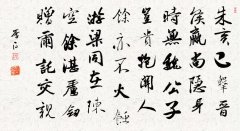 朱亥已擊晉
侯嬴尚隱身
時無魏公子
豈貴抱關人
余亦不火食
游梁同在陳
空餘湛盧劍
贈爾託交親